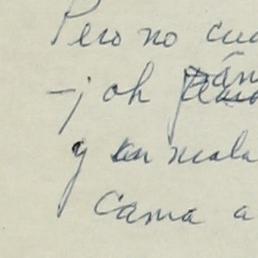 Pero no cua
—¡oh
y en mala
cama a